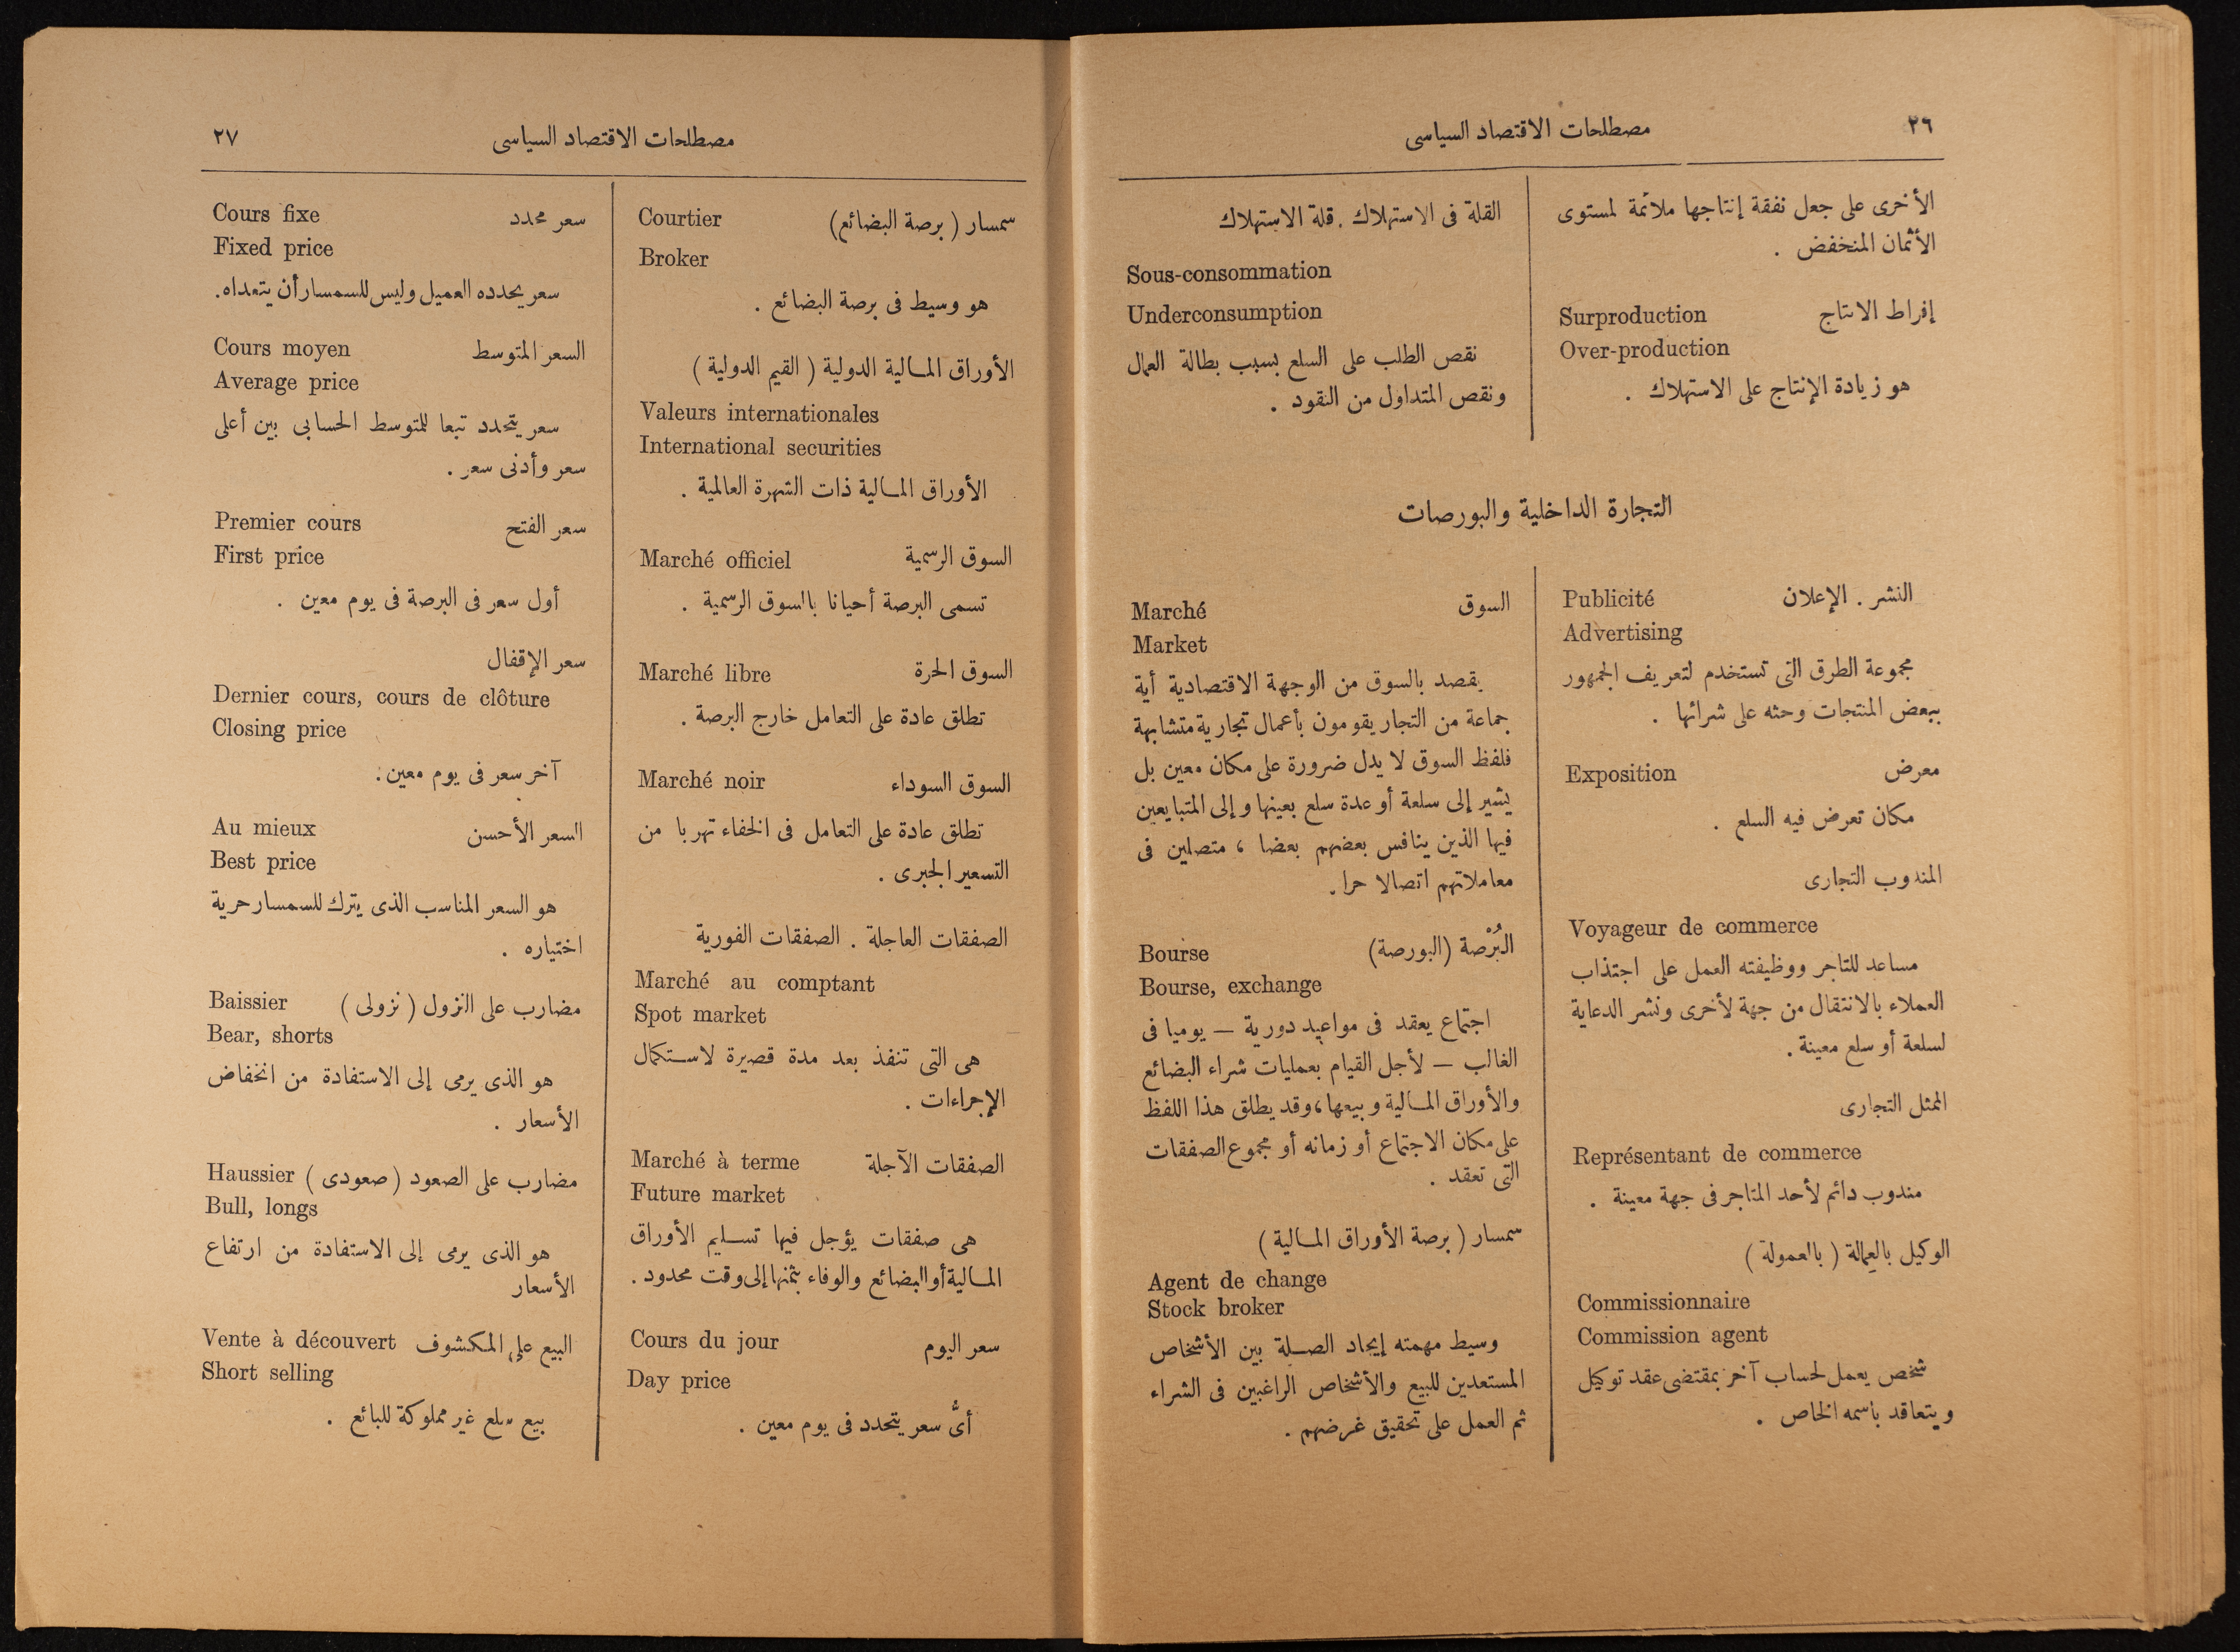 ٢٦
مصطلحات الاقتصاد السياسى
الأخرى على جعل نفقة إنتاجها ملائمة لمستوى
الأثمان المنخفض .
إفراط الانتاج Surproduction
Over-production
هو زيادة الإنتاج على الاستهلاك .
القلة فى الاستهلاك . قلة الاستهلاك
Sous-consommation
Underconsumption
نقص الطلب على السلع بسبب بطالة العمال
ونقص المتداول من النقود .
التجارة الداخلية والبورصات
النشر . الإعلان Publicité
Advertising
مجموعة الطرق التى تستخدم لتعريف الجمهور
ببعض المنتجات وحثه على شرائها .
معرض Exposition
مكان تعرض فيه السلع .
المندوب التجارى
Voyageur de commerce
مساعد للتاجر ووظيفته العمل على اجتذاب
العملاء بالانتقال من جهة لأخرى ونشر الدعاية
لسلعة أو سلع معينة .
الممثل التجارى
Représentant de commerce
مندوب دائم لأحد المتاجر فى جهة معينة .
الوكيل بالعمالة ( بالعمولة )
Commissionnaire
Commission agent
شخص يعمل لحساب آخر بمقتضى عقد توكيل
ويتعاقد باسمه الخاص .
السوق Marché
Market
يقصد بالسوق من الوجهة الاقتصادية أية
جماعة من التجار يقومون بأعمال تجارية متشابهة
فلفظ السوق لا يدل ضرورة على مكان معين بل
يشير إلى سلعة أو عدة سلع بعينها وإلى المتبايعين
فيها الذين ينافس بعضهم بعضا ، متصلين فى
معاملاتهم اتصالا حرا .
البُرْصة (البورصة) Bourse
Bourse, exchange
اجتماع يعقد فى مواعيد دورية — يوميا فى
الغالب — لأجل القيام بعمليات شراء البضائع
والأوراق المالية وبيعها، وقد يطلق هذا اللفظ
على مكان الاجتماع أو زمانه أو مجموع الصفقات
التى تعقد .
سمسار ( برصة الأوراق المالية )
Agent de change
Stock broker
وسيط مهمته إيجاد الصلة بين الأشخاص
المستعدين للبيع والأشخاص الراغبين فى الشراء
ثم العمل على تحقيق غرضهم .
مصطلحات الاقتصاد السياسى
٢٧
سمسار ( برصة البضائع) Courtier
Broker
هو وسيط فى برصة البضائع .
الأوراق المالية الدولية ( القيم الدولية )
Valeurs internationales
International securities
الأوراق المالية ذات الشهرة العالمية .
السوق الرسمية Marché officiel
تسمى البرصة أحيانا بالسوق الرسمية .
السوق الحرة Marché libre
تطلق عادة على التعامل خارج البرصة .
السوق السوداء Marché noir
تطلق عادة على التعامل فى الخفاء تهربا من
التسعير الجبرى .
الصفقات العاجلة . الصفقات الفورية
Marché au comptant
Spot market
هى التى تنفذ بعد مدة قصيرة لاستكمال
الإجراءات .
الصفقات الآجلة Marché à terme
Future market
هى صفقات يؤجل فيها تسليم الأوراق
المالية أو البضائع والوفاء بثمنها إلى وقت محدود .
سعر اليوم Cours du jour
Day price
أىُّ سعر يتحدد فى يوم معين .
سعر محدد Cours fixe
Fixed price
سعر يحدده العميل وليس للسمسار أن يتعداه.
السعر المتوسط Cours moyen
Average price
سعر يتحدد تبعا للمتوسط الحسابى بين أعلى
سعر وأدنى سعر .
سعر الفتح Premier cours
First price
أول سعر فى البرصة فى يوم معين .
سعر الإقفال
Dernier cours, cours de clôture
Closing price
آخر سعر فى يوم معين .
السعر الأحسن Au mieux
Best price
هو السعر المناسب الذى يترك للسمسار حرية
اختياره .
مضارب على النزول ( نزولى ) Baissier
Bear, shorts
هو الذى يرمى إلى الاستفادة من انخفاض
الأسعار .
مضارب على الصعود ( صعودى ) Haussier
Bull, longs
هو الذى يرمى إلى الاستفادة من ارتفاع
الأسعار
البيع على المكشوف Vente à découvert
Short selling
بيع سلع غير مملوكة للبائع .